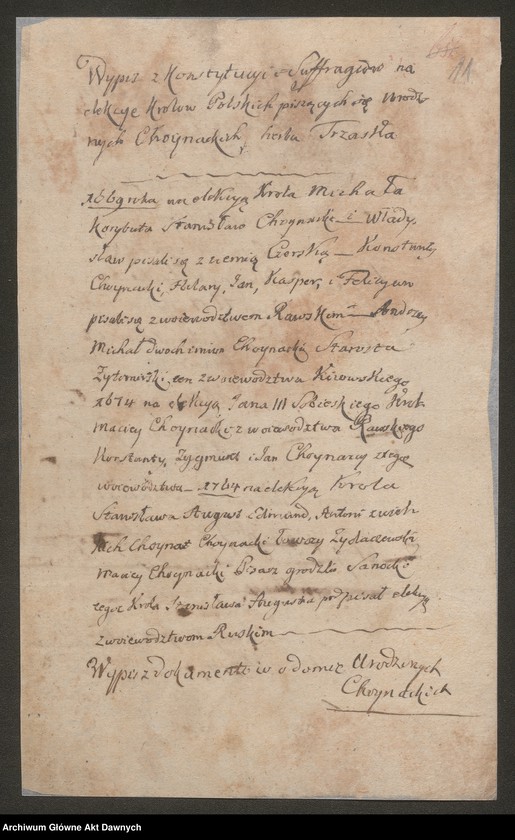 11
Wypis z Konstytucyi i Suffragiow na
elekcye Krolow Polskich piszących się Urodzo
nych Choynackich, herbu Trzaska
1669 roku na elekcyą Krola Michała
Korybuta Stanisław Choynacki i Włady,
sław pisali się z ziemią Czerską – Konstanty
Choynacki, Hilary, Jan, Kasper, i Felicyan
pisali się z woiewodztwem Rawskim – Andrzey
Michał dwoch imion Choynacki Starosta
Żytomirski, ten z woiewodztwa Kiiowskiego
1674 na elekcyą Jana III Sobieskiego Krol
Maciey Choynacki z woiewodztwa Rawskiego
Konstanty, Zygmunt i Jan Choynaccy z tego
woiewodztwa – 1764 na elekcyą Krola
Stanisława August Edmund, Antoni z wiel
kich Choynat Choynacki Łowczy Żydaczewski
Maciey Choynacki Pisarz grodzki Sanocki
tegoż Krola Stanisława Augusta podpisał elekcyą
z woiewodztwom Ruskim
Wypis z Dokumentow o domie Urodzonych
Choynackich
Archiwum Główne Akt Dawnych